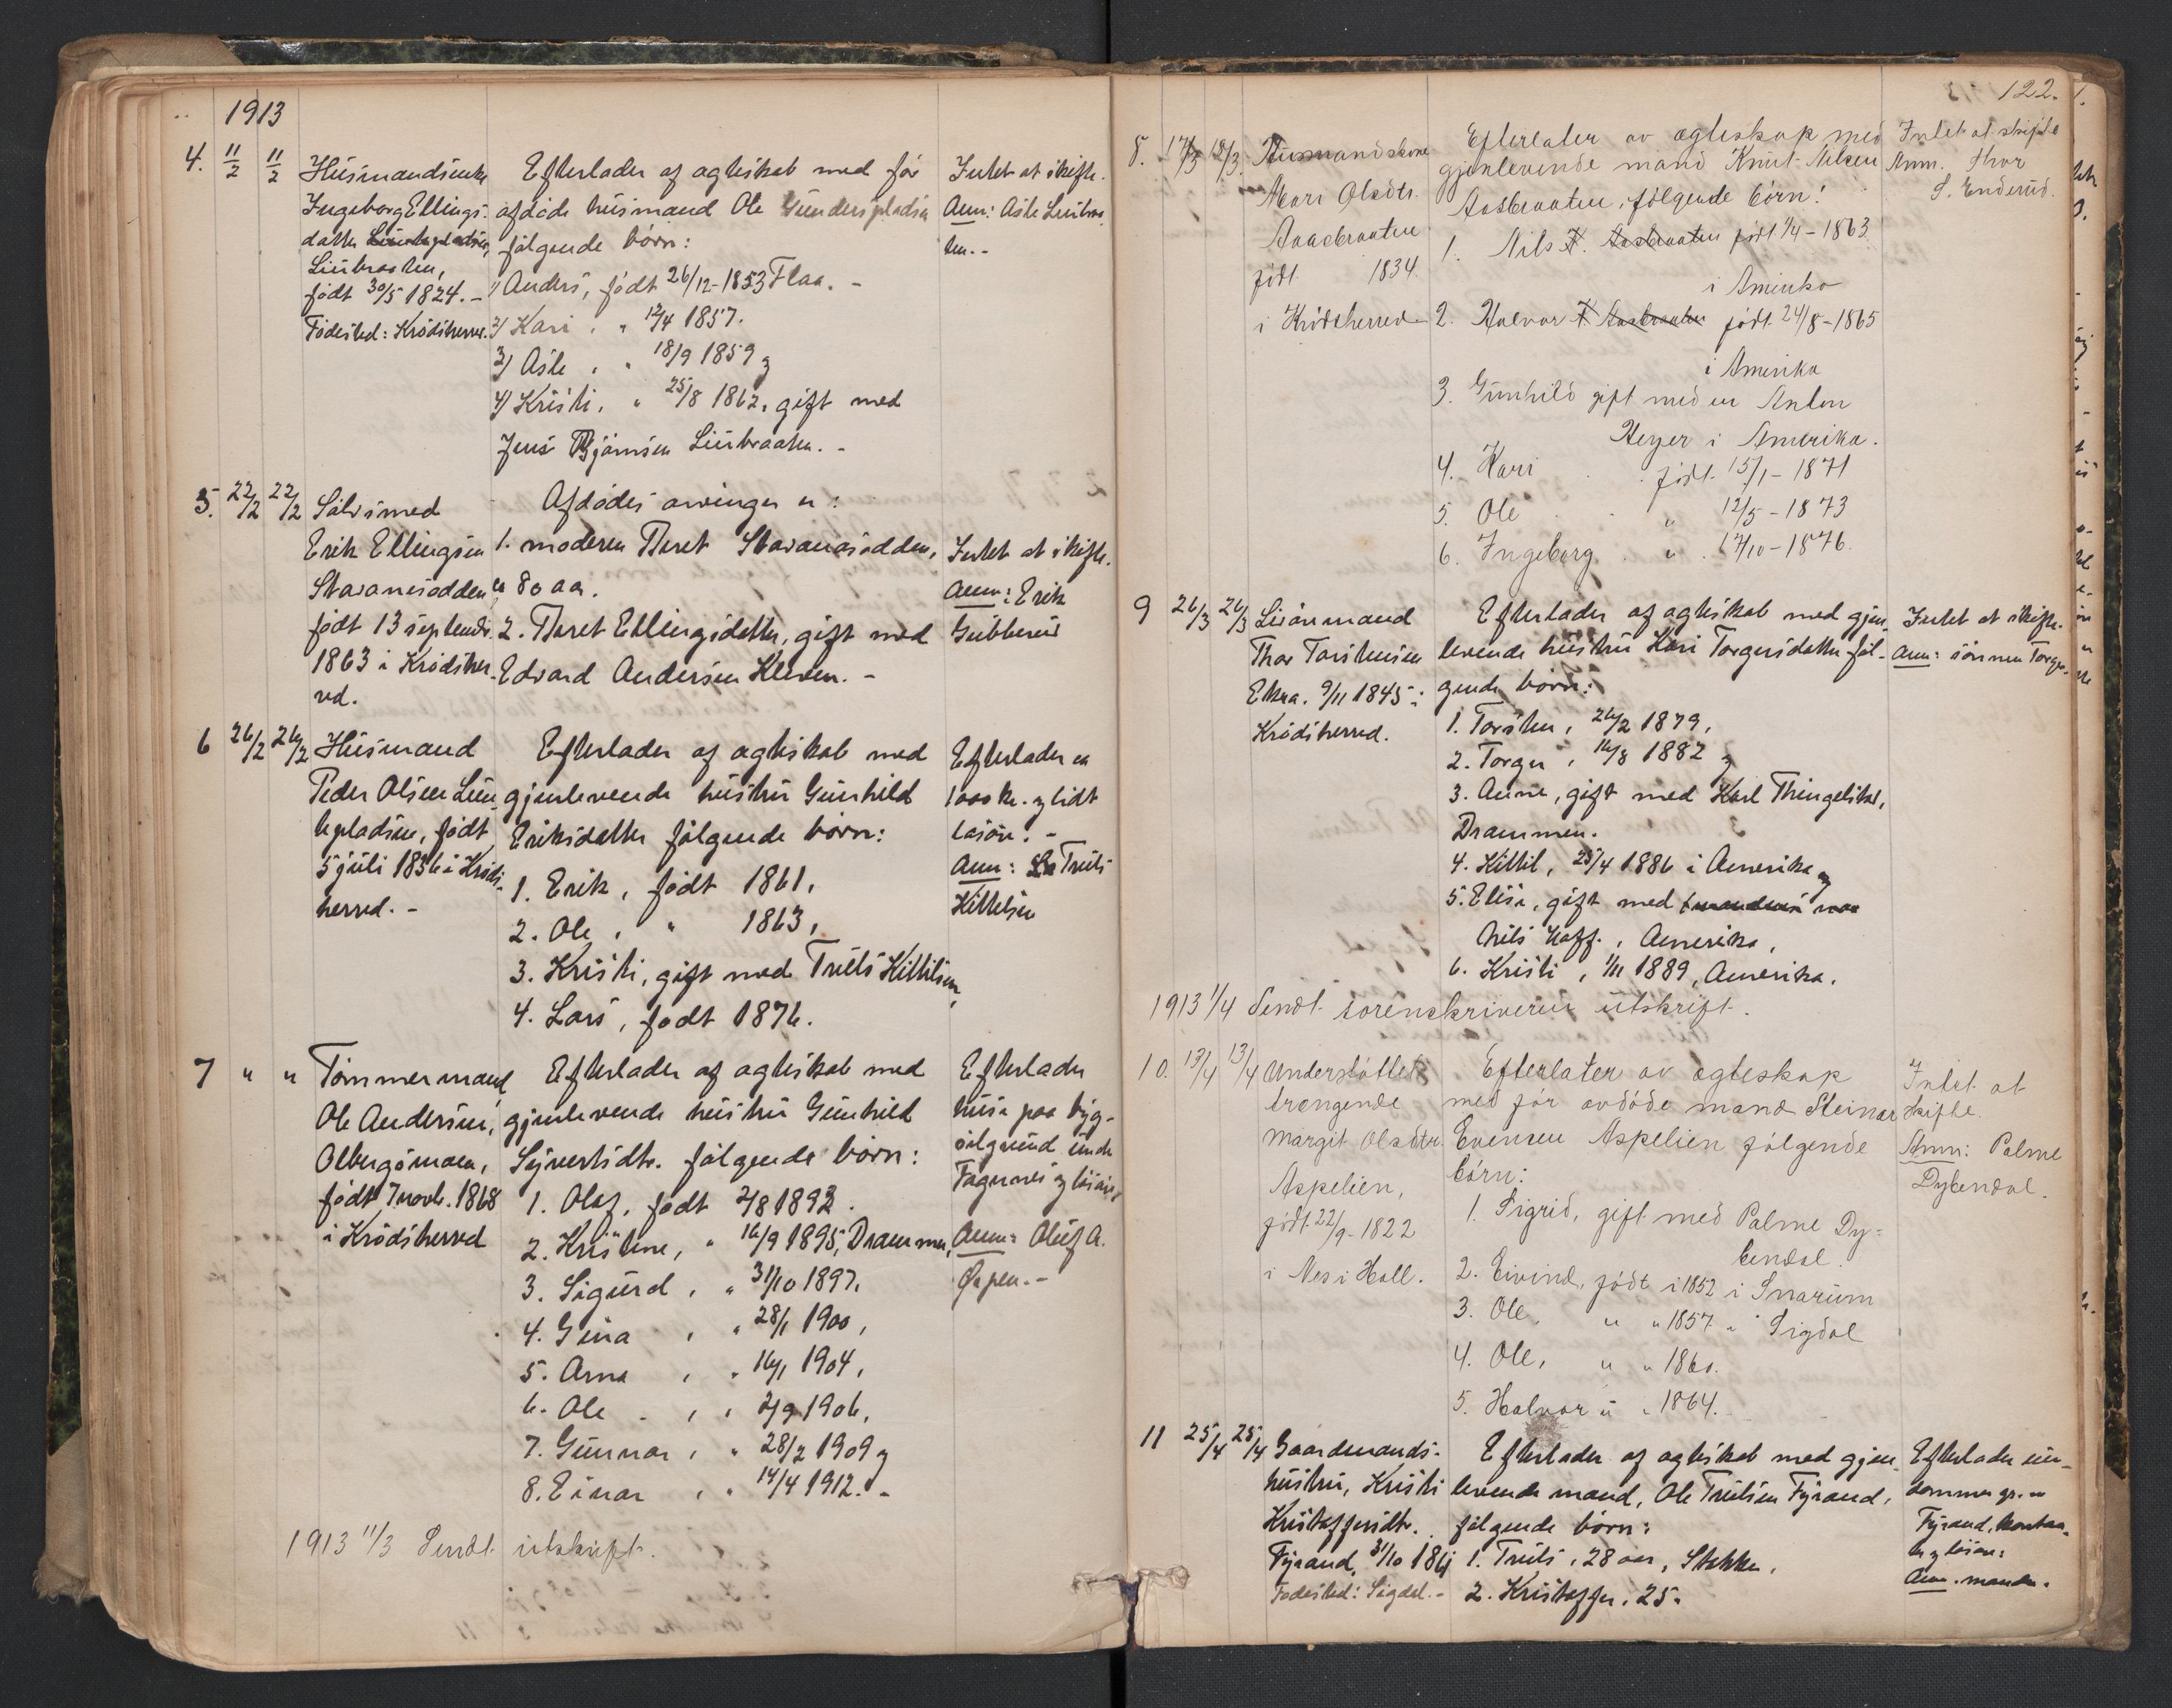 1913
4. 11/2 11/2 Husmandsenke Efterlader af ægteskab med før Intet at skifte.
Ingeborg Ellings- afdøde husmand Ole Anm: Asle Liubraa-
datter følgende børn: ten. -
Liubraaten,
født 30/5 1824. - 1/ Anders, født 26/12-1853 Flaa. -
Fødested: Krødsherred. 2/ Kari, " 12/4 1857.
3/ Asle, " 18/9 1859 og
4/ Kristi, " 25/8 1862, gift med
Jens Bjørnsen Liubraaten. -
5. 22/2 22/2 Sølvsmed Afdødes arvinger er:
Erik Ellingsen 1. moderen Beret Stavanesodden, Intet at skifte.
Stavanesodden ca 80 aar. Anm: Erik
født 13 septembr. 2. Beret Ellingsdatter, gift med Gubberud
1863 i Krødsher- Edvard Andersen Kleven. -
red.
6 26/2 26/2 Husmand Efterlader af ægteskab med Efterlader ca
Peder Olsen Lun- gjenlevende hustru Gunhild 1000 kr. og lidt
tepladsen, født Eriksdatter følgende børn: løsøre. -
5 juli 1836 i Krøds- 1. Erik, født 1861, Anm: Truls
herred. - 2. Ole, " 1863, Kittelsen
3. Kristi, gift med Truls Kittilsen,
4. Lars, født 1876.
7 " " Tømmermand Efterlader af ægteskab med Efterlader
Ole Andersen, gjenlevende hustru Gunhild huse paa byg-
Olbergsmoen, Syvertsdtr. følgende børn: selgrund under
født 7 novb. 1868 1. Olaf, født 2/8 1893. Fagernes og løsøre
i Krødsherred 2. Kristine, " 16/9 1895, Drammen, Anm: Oluf A.
3. Sigurd, " 31/10 1897, Ørpen. -
4. Gina, " 28/1 1900,
5. Arna, " 16/1 1904,
6. Ole, " 2/9 1906,
7. Gunnar, " 28/2 1909 og
8. Einar, " 14/4 1912. -
1913 11/3 Sendt utskrift.
122.
8. 17/3 18/3. Husmandskone Efterlater av ægteskap med Intet at skifte
Mari Olsdtr. gjenlevende mand Knut Nilsen Anm. Thor
Aasbraaten Aasbraaten, følgende børn: S. Enderud.
født 1834. 1. Nils K. Aasbraaten født 1/4 - 1863
i Amerika
i Krødsherred 2. Halvor K Aasbraaten født 24/8 - 1865
i Amerika
3. Gunhild gift med en Anton
Heyer i Amerika.
4. Kari født 15/1 - 1871
5. Ole " 12/5 - 1873
6. Ingeborg " 17/10 - 1876.
9 26/3 26/3 Livøremand Efterlader af ægteskab med gjen- Intet at skifte.
Thor Torstensen levende hustru Kari Torgersdatter føl- Anm: sønnen Torger.
Ekra. 9/11 1845 i gende børn:
Krødsherred. 1. Torsten, 26/2 1879,
2. Torger, 16/8 1882 og
3. Anne, gift med Karl Thingelstad,
Drammen.
4. Kittil, 25/4 1886 i Amerika og
5. Elise, gift med
Nils Hoff, Amerika,
6. Kristi, 1/11 1889, Amerika.
1913 1/4 Sendt sorenskriveren utskrift.
10. 13/4 13/4 Understøttelses Efterlater av ægteskap Intet at
trængende med før avdøde mand Steinar skifte.
Margit Olsdtr. Evensen Aspelien følgende Anm: Palme
Aspelien, børn: Dybendal.
født 22/9-1822 1. Sigrid, gift med Palme Dy=
bendal.
i Nes i Hall. 2. Eivind, født i 1852 i Snarum
3. Ole, " " 1857 " Sigdal
4. Ole, " " 1860.
5. Halvor " " 1864.
11 25/4 25/4 Gaardmands- Efterlader af ægteskab med gjen- Efterlader eien-
hustru, Kristi levende mand, Ole Trulsen Fyrand, dommen gr. nr
Kristoffersdtr. følgende børn: Fyrand, kontan-
Fyrand, 31/10 186 1. Truls, 28 aar, Stekka, ter og løsøre:
Fødested: Sigdal. - 2. Kristoffer, 25 " Anm. manden.